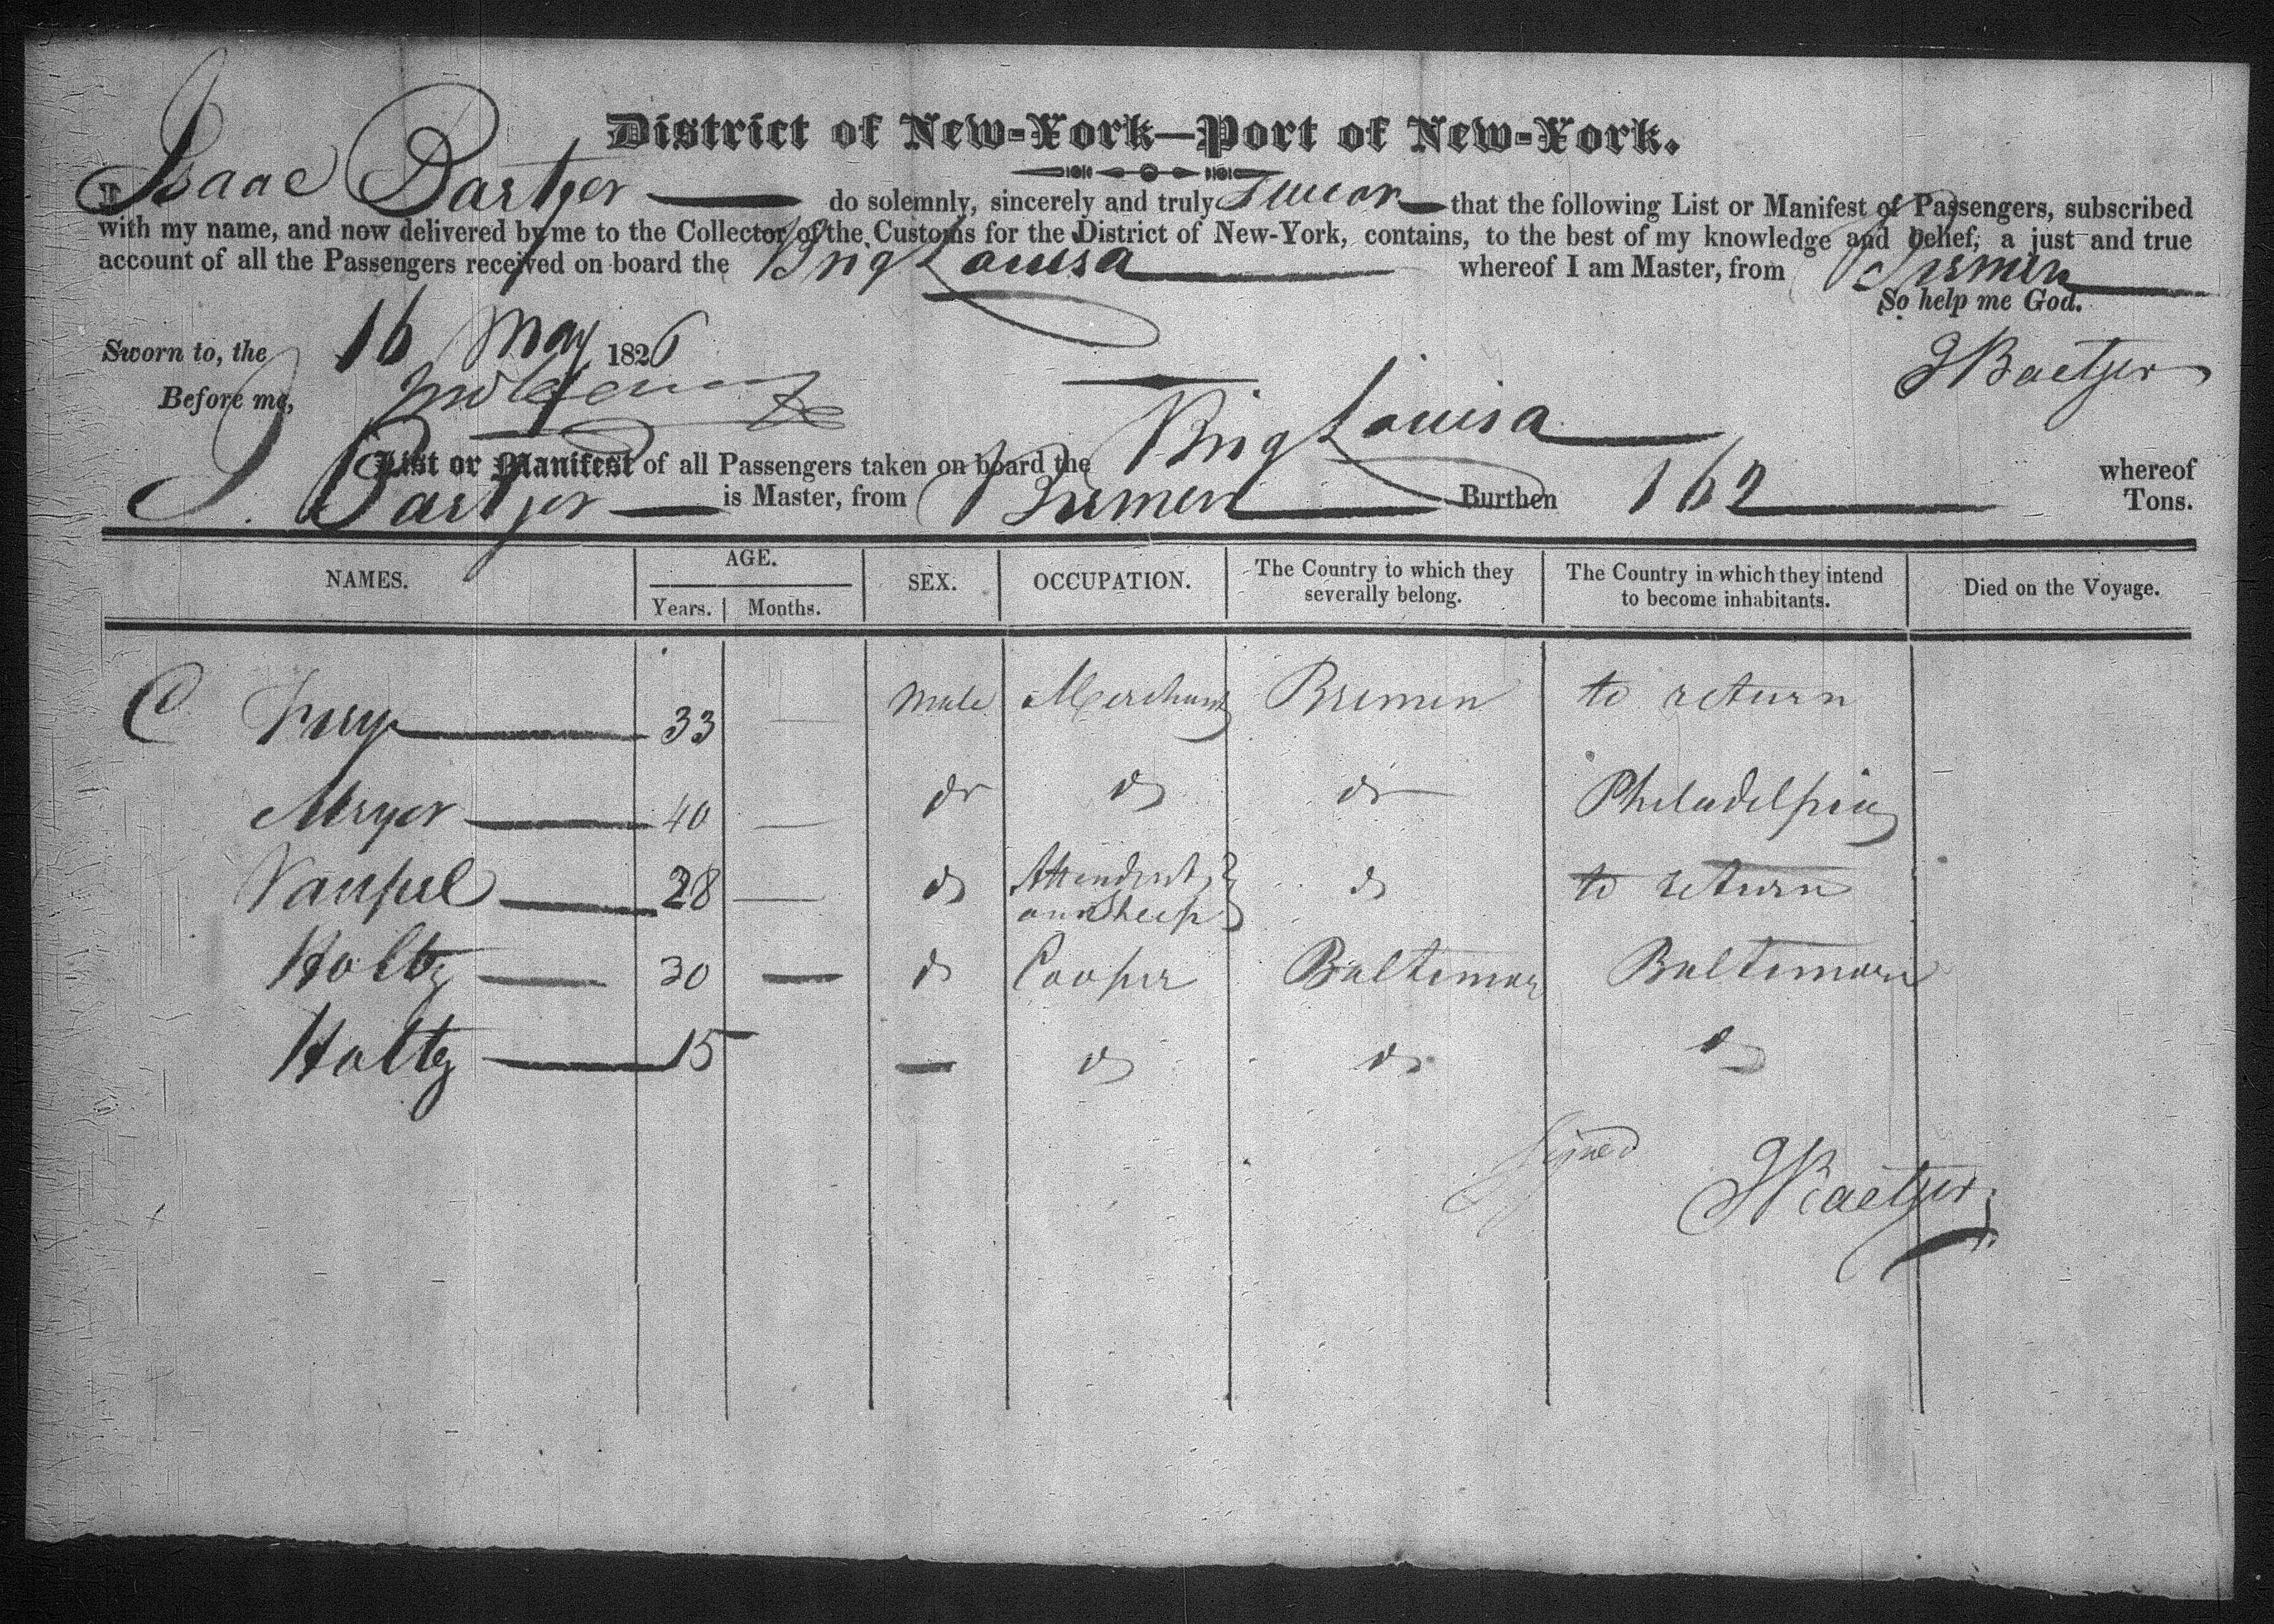 District of New-York—Port of New-York.
I Isaac Bartger do solemnly, sincerely and truly swear that the following List or Manifest of Passengers, subscribed
with my name, and now delivered by me to the Collector of the Customs for the District of New-York, contains, to the best of my knowledge and belief, a just and true
account of all the Passengers received on board the Brig Louisa whereof I am Master, from Bremen
So help me God.
Sworn to, the 16 May 1826
Before me,
J Baetjer
List or Manifest of all Passengers taken on board the Brig Louisa whereof
J. Bartger is Master, from Bremen Burthen 162 Tons.
NAMES. AGE. SEX. OCCUPATION. The Country to which they severally belong. The Country in which they intend to become inhabitants. Died on the Voyage.
Years. Months.
C 33 — Male Merchant Bremen to return
Meyer 40 — do do do Philadelphia
Vaupel 28 — do Attendent do to return
Sheep
Holtz 30 — do Cooper Baltimore Baltimore
Holtz 15 — do do do
Signed
J Baetjer